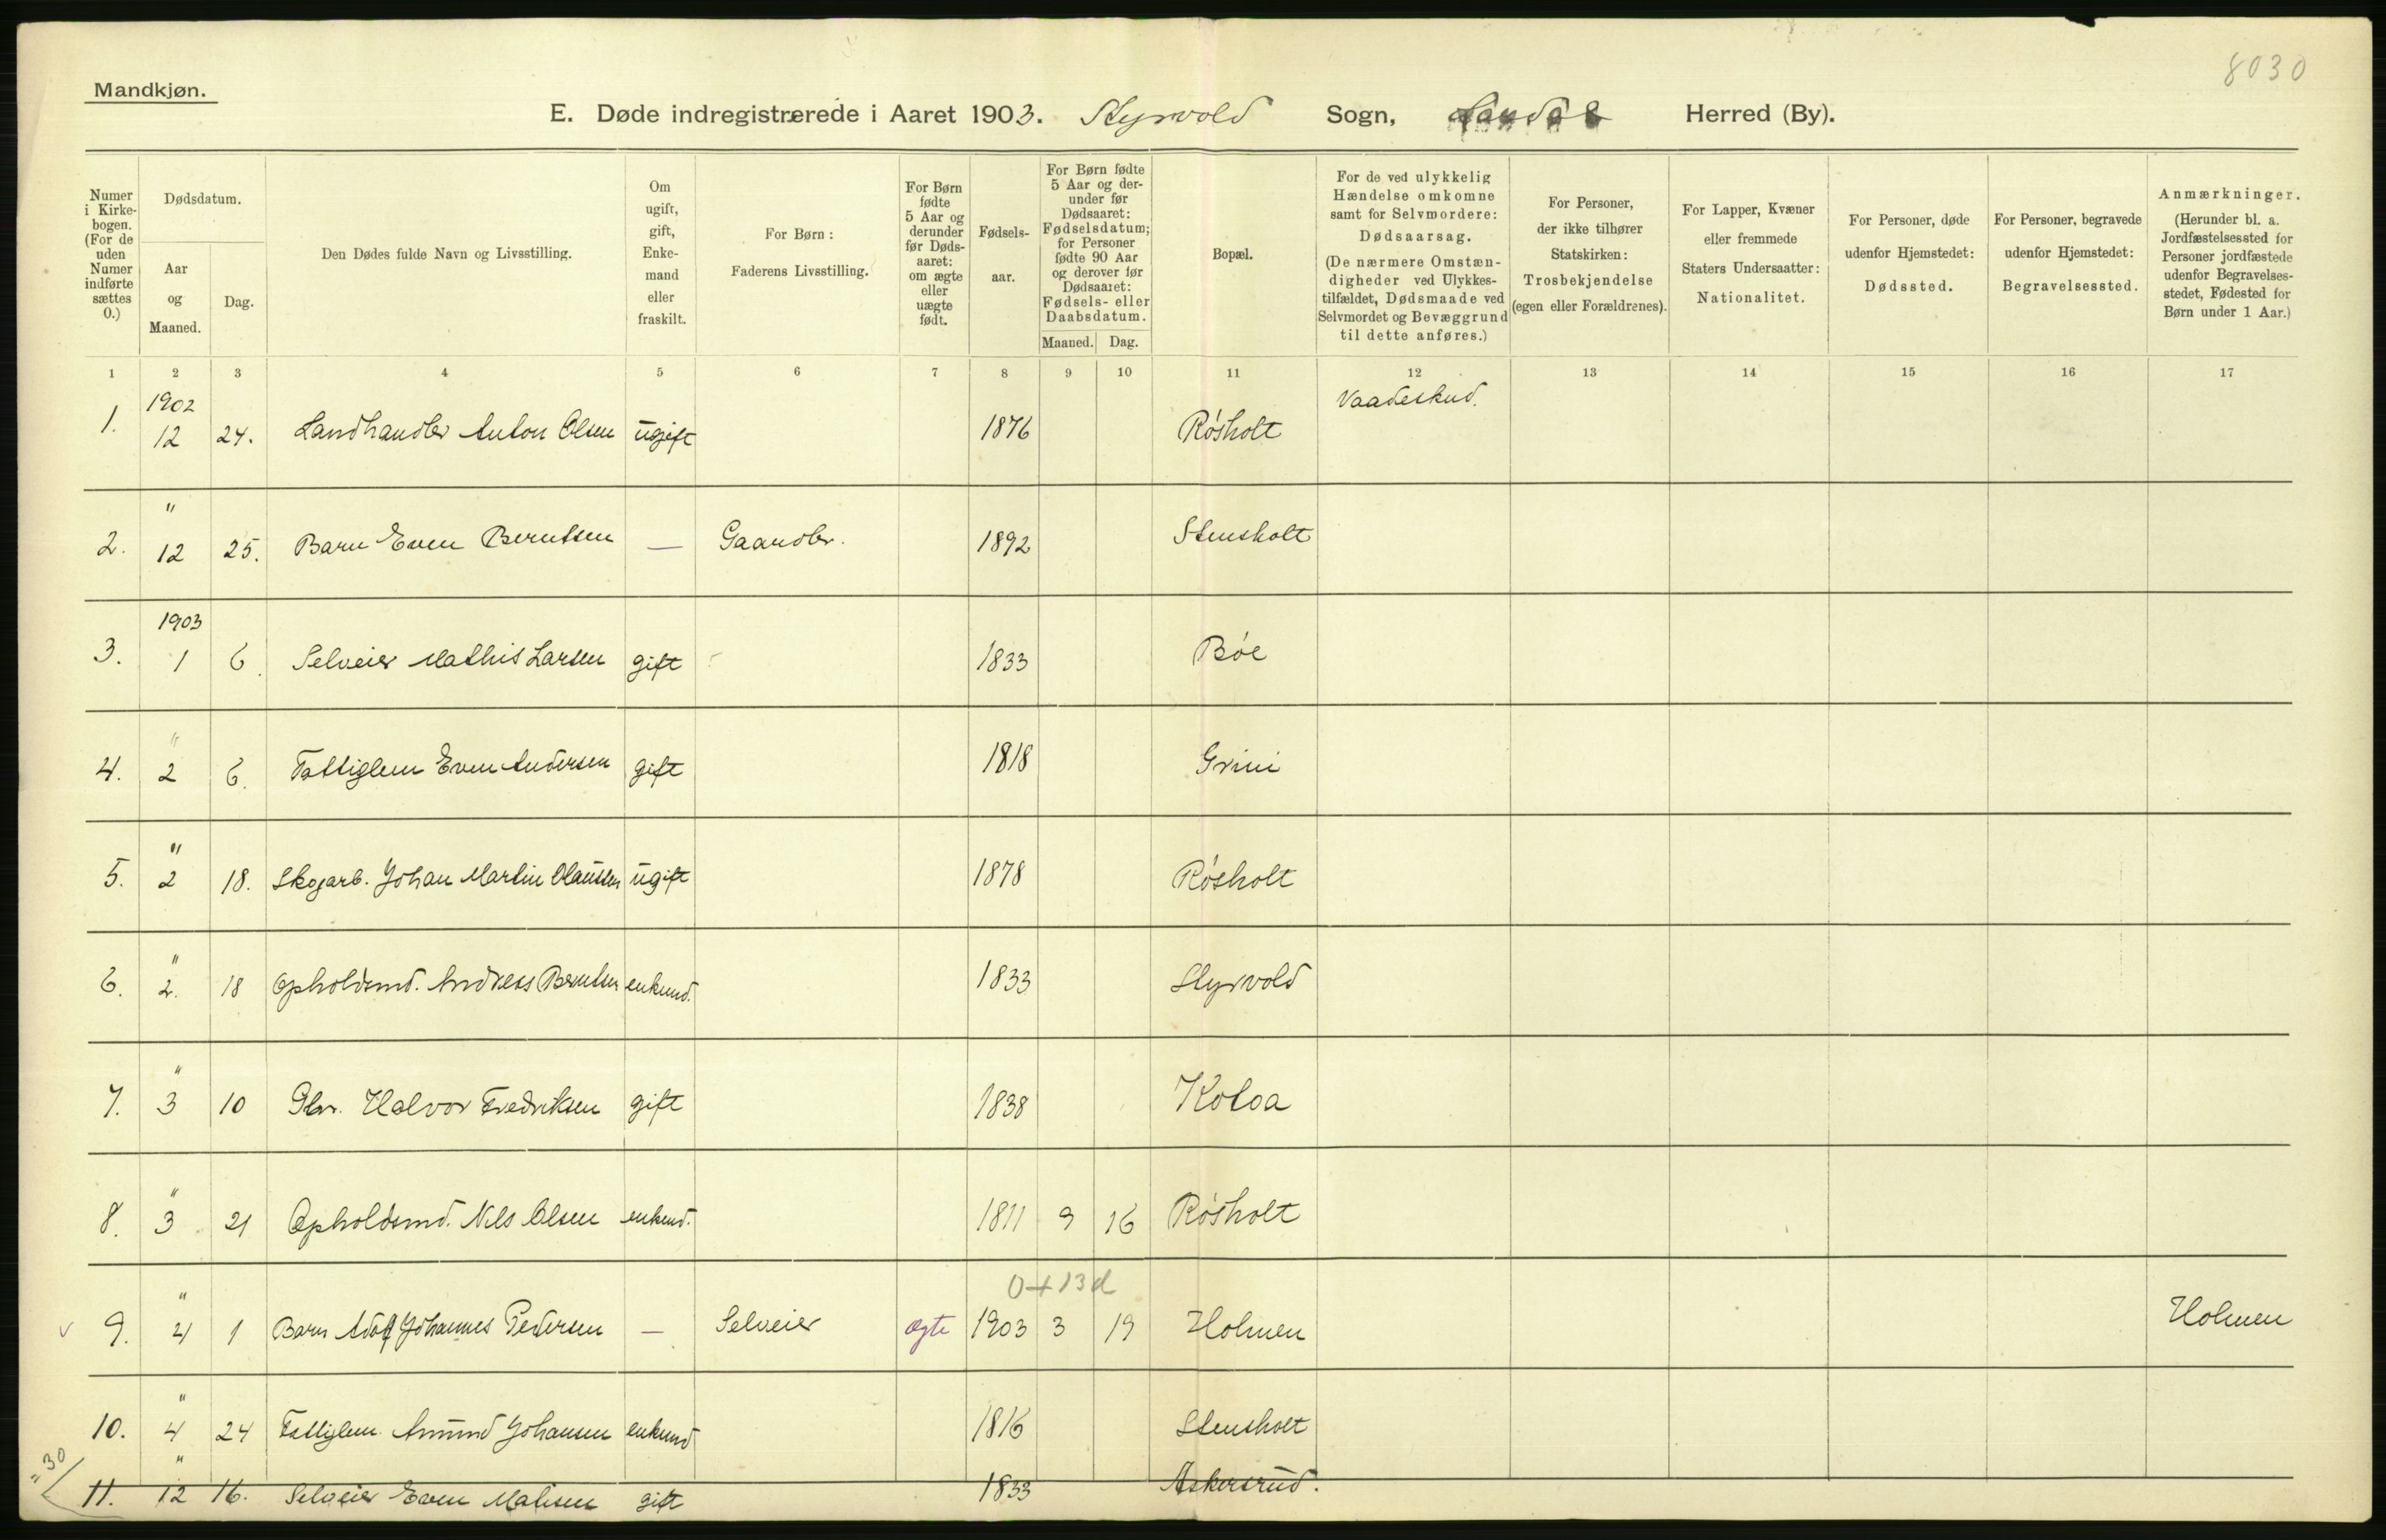 8030
Mandkjøn.
E. Døde indregistrerede i Aaret 1903. Styrvold Sogn, Herred (By).
Numer i Kirkebogen. (For de uden Numer indførte sættes 0.)
Dødsdatum.
Aar og Maaned.
Dag.
Den Dødes fulde Navn og Livsstilling.
Om ugift, gift, Enkemand eller fraskilt.
For Børn: Faderens Livsstilling.
For Børn fødte 5 Aar og derunder før Dødsaaret: om ægte eller uægte født.
Fødselsaar.
For Børn fødte 5 Aar og derunder før Dødsaaret: Fødselsdatum; for Personer fødte 90 Aar og derover før Dødsaaret: Fødsels- eller Daabsdatum.
Maaned. Dag.
Bopæl.
For de ved ulykkelig Hændelse omkomne samt for Selvmordere: Dødsaarsag. (De nærmere Omstændigheder ved Ulykkestilfældet, Dødsmaade ved Selvmordet og Bevæggrund til dette anføres.)
For Personer, der ikke tilhører Statskirken: Trosbekjendelse (egen eller Forældrenes).
For Lapper, Kvæner eller fremmede Staters Undersaatter: Nationalitet.
For Personer, døde udenfor Hjemstedet: Dødssted.
For Personer, begravede udenfor Hjemstedet: Begravelsessted.
Anmærkninger. (Herunder bl. a. Jordfæstelsessted for Personer jordfæstede udenfor Begravelsesstedet, Fødested for Børn under 1 Aar.)
1 2 3 4 5 6 7 8 9 10 11 12 13 14 15 16 17
1. 1902 12 24. Landhandler Anton Olsen ugift 1876 Røsholt Vaadeskud.
2. " 12 25. Barn Even Berntsen — Gaardbr. 1892 Stensholt
3. 1903 1 6. Selveier Mathis Larsen gift 1833 Bøe
4. " 2 6. Fattiglem Even Andersen gift 1818 Grini
5. " 2 18. Skogarb. Johan Martin Olaussen ugift 1878 Røsholt
6. " 2. 18 Opholdsmd. Andreas Berntsen enkemd. 1833 Styrvold
7. " 3 10 Gbr. Halvor Fredriksen gift 1838 Kotoa
8. " 3 21 Opholdsmd. Nils Olsen enkemd. 1811 9 16 Røsholt
0+13d
v 9. " 4 1 Barn Adolf Johannes Pedersen — Selveier ægte 1903 3 19 Holmen Holmen
10. " 4 24 Fattiglem Amund Johansen enkemd 1816 Stensholt
= 30
11. " 12 16. Selveier Even gift 1833 Askersrud.